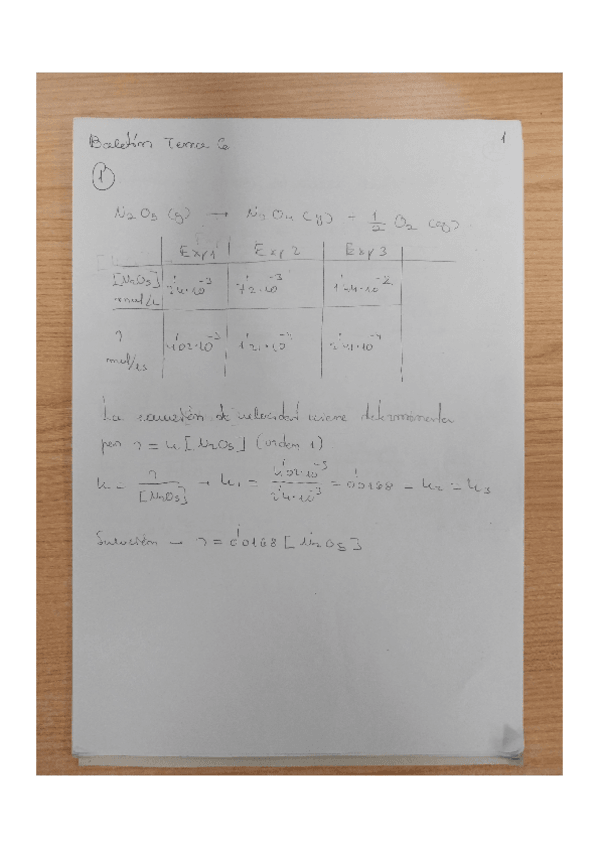 Boletín Tema 6 1
①
N2O5 (g) → N2O4 (g) + 1/2 O2 (g)
Exp 1 Exp 2 Exp 3
[N2O5] mol/L 2'4·10^-3 7'2·10^-3 1'44·10^-2
mol/Ls 4'02·10^-3
La ecuación de velocidad viene determinada
por r = k [N2O5] (orden 1)
k = r/[N2O5] → k1 = = 0'0168 = k2 = k3
Solución → r = 0'0168 [N2O5]